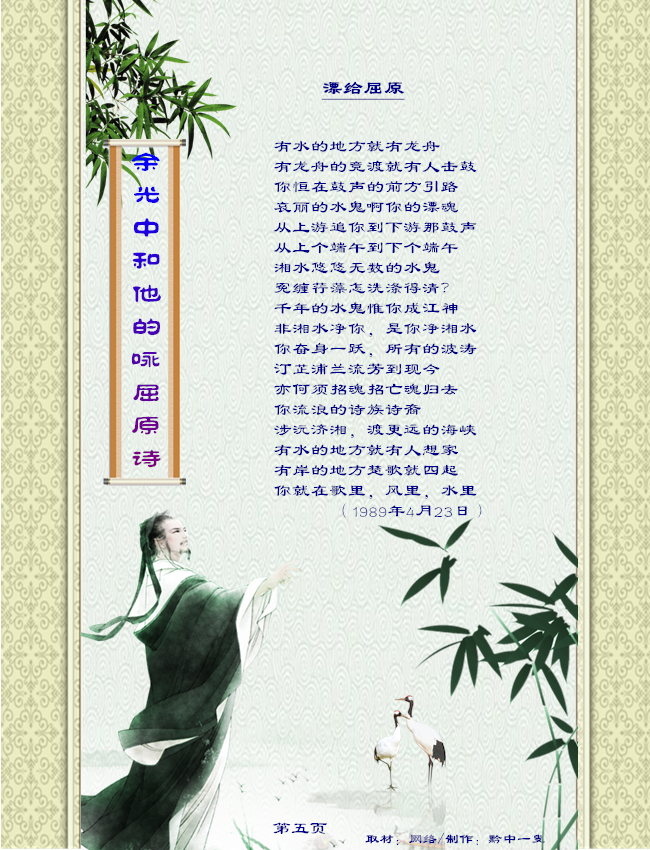 余光中和他的咏屈原诗
漂给屈原
有水的地方就有龙舟
有龙舟的竞渡就有人击鼓
你恒在鼓声的前方引路
哀丽的水鬼啊你的漂魂
从上游追你到下游那鼓声
从上个端午到下个端午
湘水悠悠无数的水鬼
冤缠荇藻怎洗涤得清?
千年的水鬼惟你成江神
非湘水净你，是你净湘水
你奋身一跃，所有的波涛
汀芷浦兰流芳到现今
亦何须招魂招亡魂归去
你流浪的诗族诗裔
涉沅济湘，渡更远的海峡
有水的地方就有人想家
有岸的地方楚歌就四起
你就在歌里，风里，水里
（1989年4月23日）
第五页
取材：网络/制作：黔中一叟